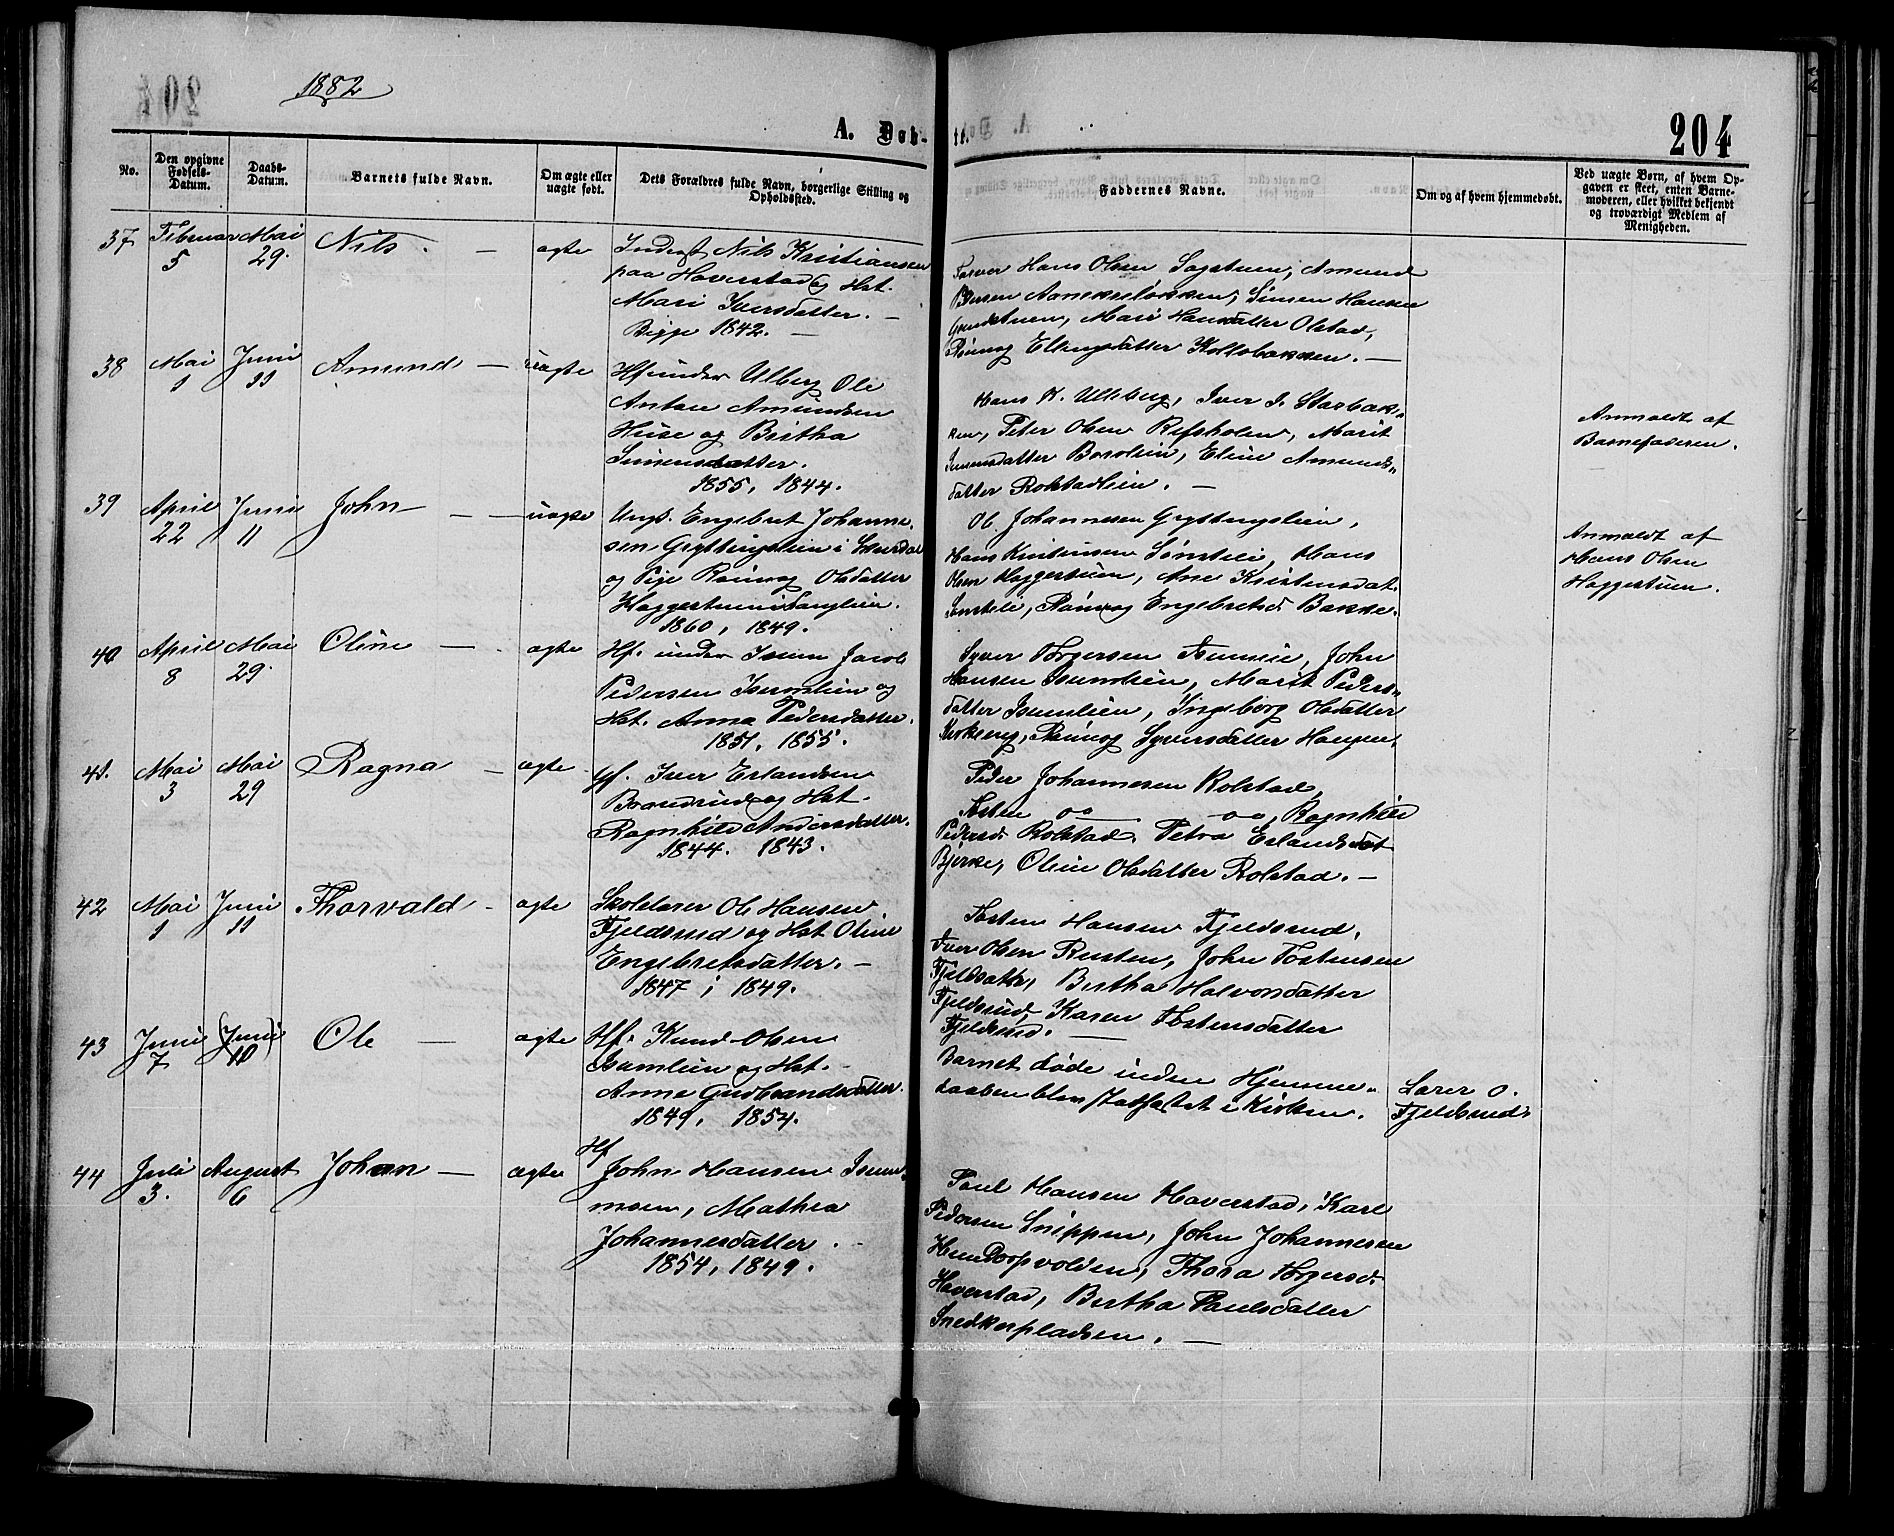 1882
A. Døb-
te.
204
No.
Den opgivne Fødsels-Datum.
Daabs-Datum.
Barnets fulde Navn.
Om ægte eller uægte født.
Dets Forældres fulde Navn, borgerlige Stilling og Opholdssted.
Faddernes Navne.
Om og af hvem hjemmedøbt.
Ved uægte Børn, af hvem Opgaven er skeet, enten Barnemoderen, eller hvilket bekjendt og troværdigt Medlem af Menigheden.
37 Februar 5 Mai 29. Nils. — ægte
Inderst Nils Kristiansen
paa Haverstad og Hst.
Mari Iversdatter. —
Bigge 1842. —
Farver Hans Olsen Sagstuen, Amund
Hansdatter Olstad,
Rønnog Ellingsdatter Kollobakken. —
38 Mai 1 Juni 11 Amund — uægte
Hf under Ulberg Ole
Anton Amundsen
Huse og Bertha
Simensdatter.
1855, 1844.
Hans K. Ulleberg, Iver J. Storbak-
ken, Peter Olsen Refsholen, Marit
Simensdatter Boroleien, Eline Amunds-
datter Rolstadleien. —
Anmeldt af
Barnefaderen.
39 April 22 Juni 11 John — — uægte
Ungk. Engebret Johanne-
sen Gryttingslien i
og Pige Rønnog Olsdatter
Haggestuen
1860, 1849.
Ol. Johannesen Gryttingslien,
Hans Kristensen Sønstelie, Hans
Olsen Haggestuen, Ane Kristensdat.
Sønstelie, Rønnog Engebretsd. Bakke.
Anmeldt af
Hans Olsen
Haggestuen.
40 April 8 Mai 29. Oline — ægte
Hf. under Isum Jacob
Pedersen Isumlien og
Hst. Anna Pedersdatter.
1851, 1855.
Syver Torgersen, John
Hansen Isumlien, Marit Peders-
datter Isumlien, Ingeborg Olsdatter
Kirkerug, Rønnog Syversdatter Haugen.
41. Mai 3 Mai 29 Ragna — ægte
Hf. Iver Erlandsen
Brandrud og Hst.
Ragnhild Andersdatter.
1844. 1843.
Peder Johannesen Rolstad,
Tosten oo — oo, Ragnhild
Pedersd. Rolstad, Petra Erlandsdat
Bjørke, Oline Olsdatter Rolstad. —
42 Mai 1 Juni 11 Thorvald — ægte
Skolelærer Ole Hansen
Fjeldsrud og Hst. Oline
Engebretsdatter. —
1847 ; 1849.
Tosten Hansen Fjeldsrud,
Iver Olsen Rusten, John Tostensen
Fjeldsæter, Bertha Halvorsdatter
Fjeldsrud, Karen Tostensdatter
Fjeldsrud. —
43 Juni 7 (Juni) 10 Ole — ægte
Hf. Knud Olsen
Isumlien og Hst.
Anne Gudbrandsdatter.
1849, 1854.
Barnet døde inden Hjemme-
daaben blev stadfæstet i Kirken.
Lærer O.
Fjeldsrud.
44 Juli 3. August 6 Johan — ægte
Hf
John Hansen Isum-
moen, Mathea
Johannesdatter.
1854, 1849.
Paul Hansen Haverstad, Karl
Pedersen Snippen, John Johannesen
Hundorpvolden, Thora Torgersd.
Haverstad, Bertha Paulsdatter
Snedkerpladsen. —